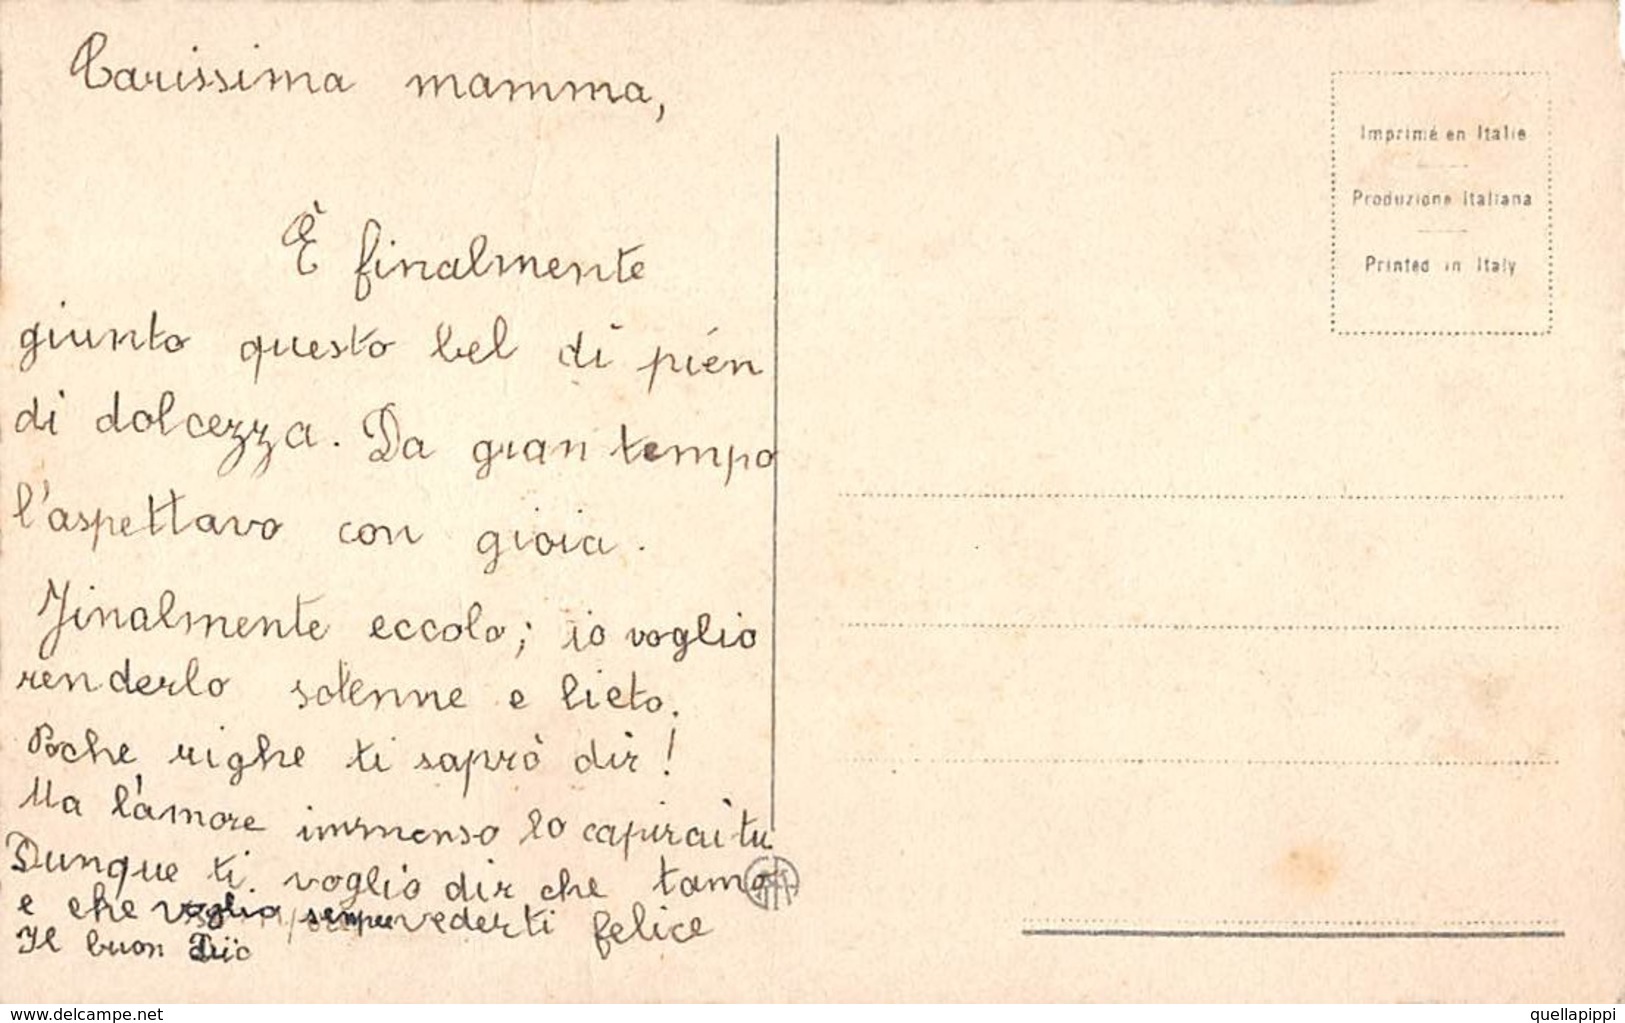 Carissima mamma,
È finalmente
giunto questo bel dì pién
di dolcezza. Da gran tempo
l'aspettavo con gioia.
Finalmente eccolo; io voglio
renderlo solenne e lieto.
Poche righe ti saprò dir!
Ma l'amore immenso lo capirai tu
Dunque ti voglio dir che tamo
e che voglio sempre vederti felice
Il buon
Imprimé en Italie
Produzione Italiana
Printed in Italy
delcampe.net
quellapippi